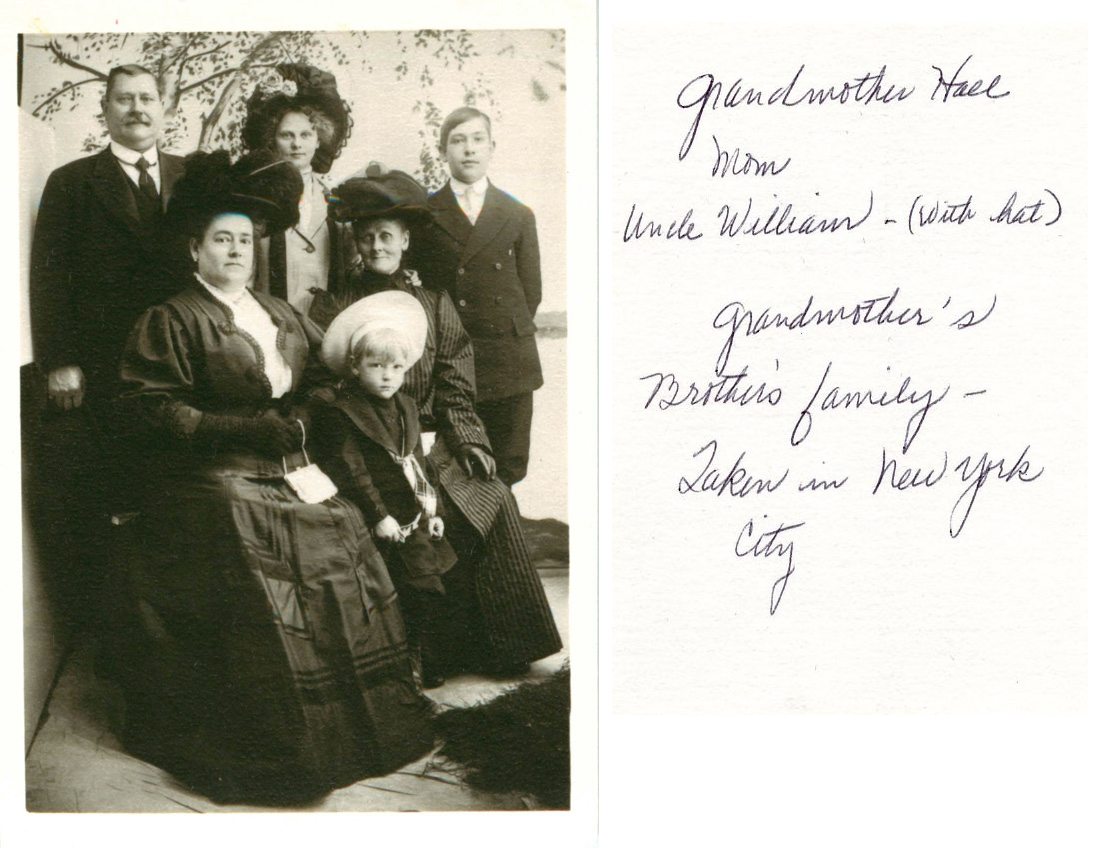 Grandmother Hall
Mom
Uncle William - (with hat)
Grandmother's
Brother's family -
Taken in New York
City